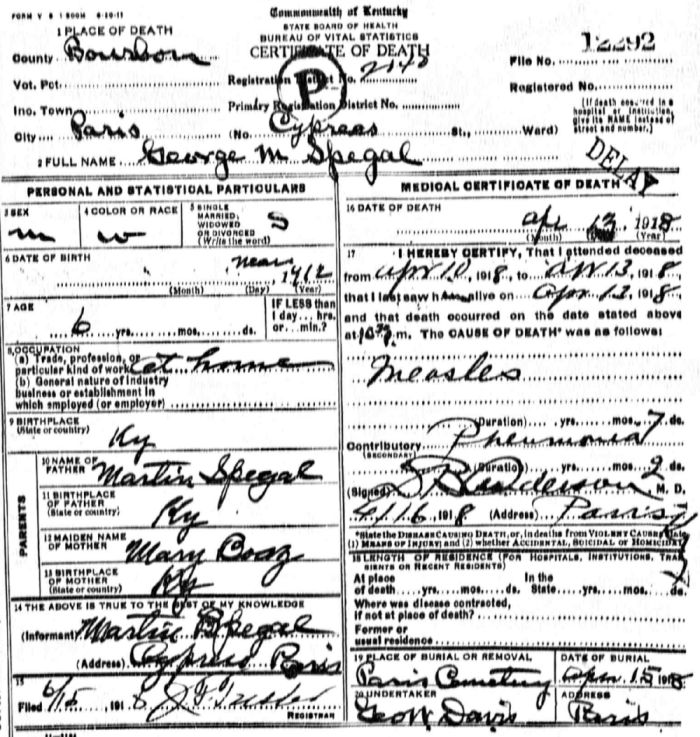 FORM V S 1 500M 6-20-11
Commonwealth of Kentucky
STATE BOARD OF HEALTH
BUREAU OF VITAL STATISTICS
CERTIFICATE OF DEATH
1 PLACE OF DEATH
County Bourbon
Vot. Pct.
Inc. Town
City Paris (No. Cypress St., Ward)
Registration District No. 2140
Primary Registration District No.
P
File No. 12292
Registered No.
(If death occurred in a hospital or institution, give its NAME instead of street and number.)
2 FULL NAME George M. Spegal
DELAY
PERSONAL AND STATISTICAL PARTICULARS
3 SEX m
4 COLOR OR RACE w
5 SINGLE MARRIED, WIDOWED OR DIVORCED (Write the word) S
6 DATE OF BIRTH
1912
(Month) (Day) (Year)
7 AGE
6 yrs. mos. ds.
IF LESS than 1 day... hrs. or... min.?
8 OCCUPATION
(a) Trade, profession, or particular kind of work at home
(b) General nature of industry business or establishment in which employed (or employer)
9 BIRTHPLACE
(State or country) Ky
PARENTS
10 NAME OF FATHER Martin Spegal
11 BIRTHPLACE OF FATHER (State or country) Ky
12 MAIDEN NAME OF MOTHER Mary Boaz
13 BIRTHPLACE OF MOTHER (State or country) Ky
14 THE ABOVE IS TRUE TO THE BEST OF MY KNOWLEDGE
(Informant) Martin Spegal
(Address) Cypress Paris
15
Filed 191 8
REGISTRAR
MEDICAL CERTIFICATE OF DEATH
16 DATE OF DEATH
Apr 13 1918
(Month) (Year)
17 I HEREBY CERTIFY, That I attended deceased
from Apr 10, 1918, to Apr 13, 1918
that I last saw him alive on Apr 12, 1918
and that death occurred on the date stated above
at m. The CAUSE OF DEATH* was as follows:
Measles
(Duration) yrs. mos. 7 ds.
Contributory Pneumonia
(SECONDARY)
(Duration) yrs. mos. 2 ds.
(Signed) Anderson M. D.
4/16, 1918 (Address) Paris
*State the DISEASE CAUSING DEATH, or, in deaths from VIOLENT CAUSES state
(1) MEANS OF INJURY; and (2) whether ACCIDENTAL, SUICIDAL OR HOMICIDAL
18 LENGTH OF RESIDENCE (FOR HOSPITALS, INSTITUTIONS, TRANSIENTS OR RECENT RESIDENTS)
At place of death yrs. mos. ds. In the State yrs. mos. ds.
Where was disease contracted, if not at place of death?
Former or usual residence
19 PLACE OF BURIAL OR REMOVAL Paris Cemetery
DATE OF BURIAL Apr. 15 1918
20 UNDERTAKER Geo W Davis
ADDRESS Paris